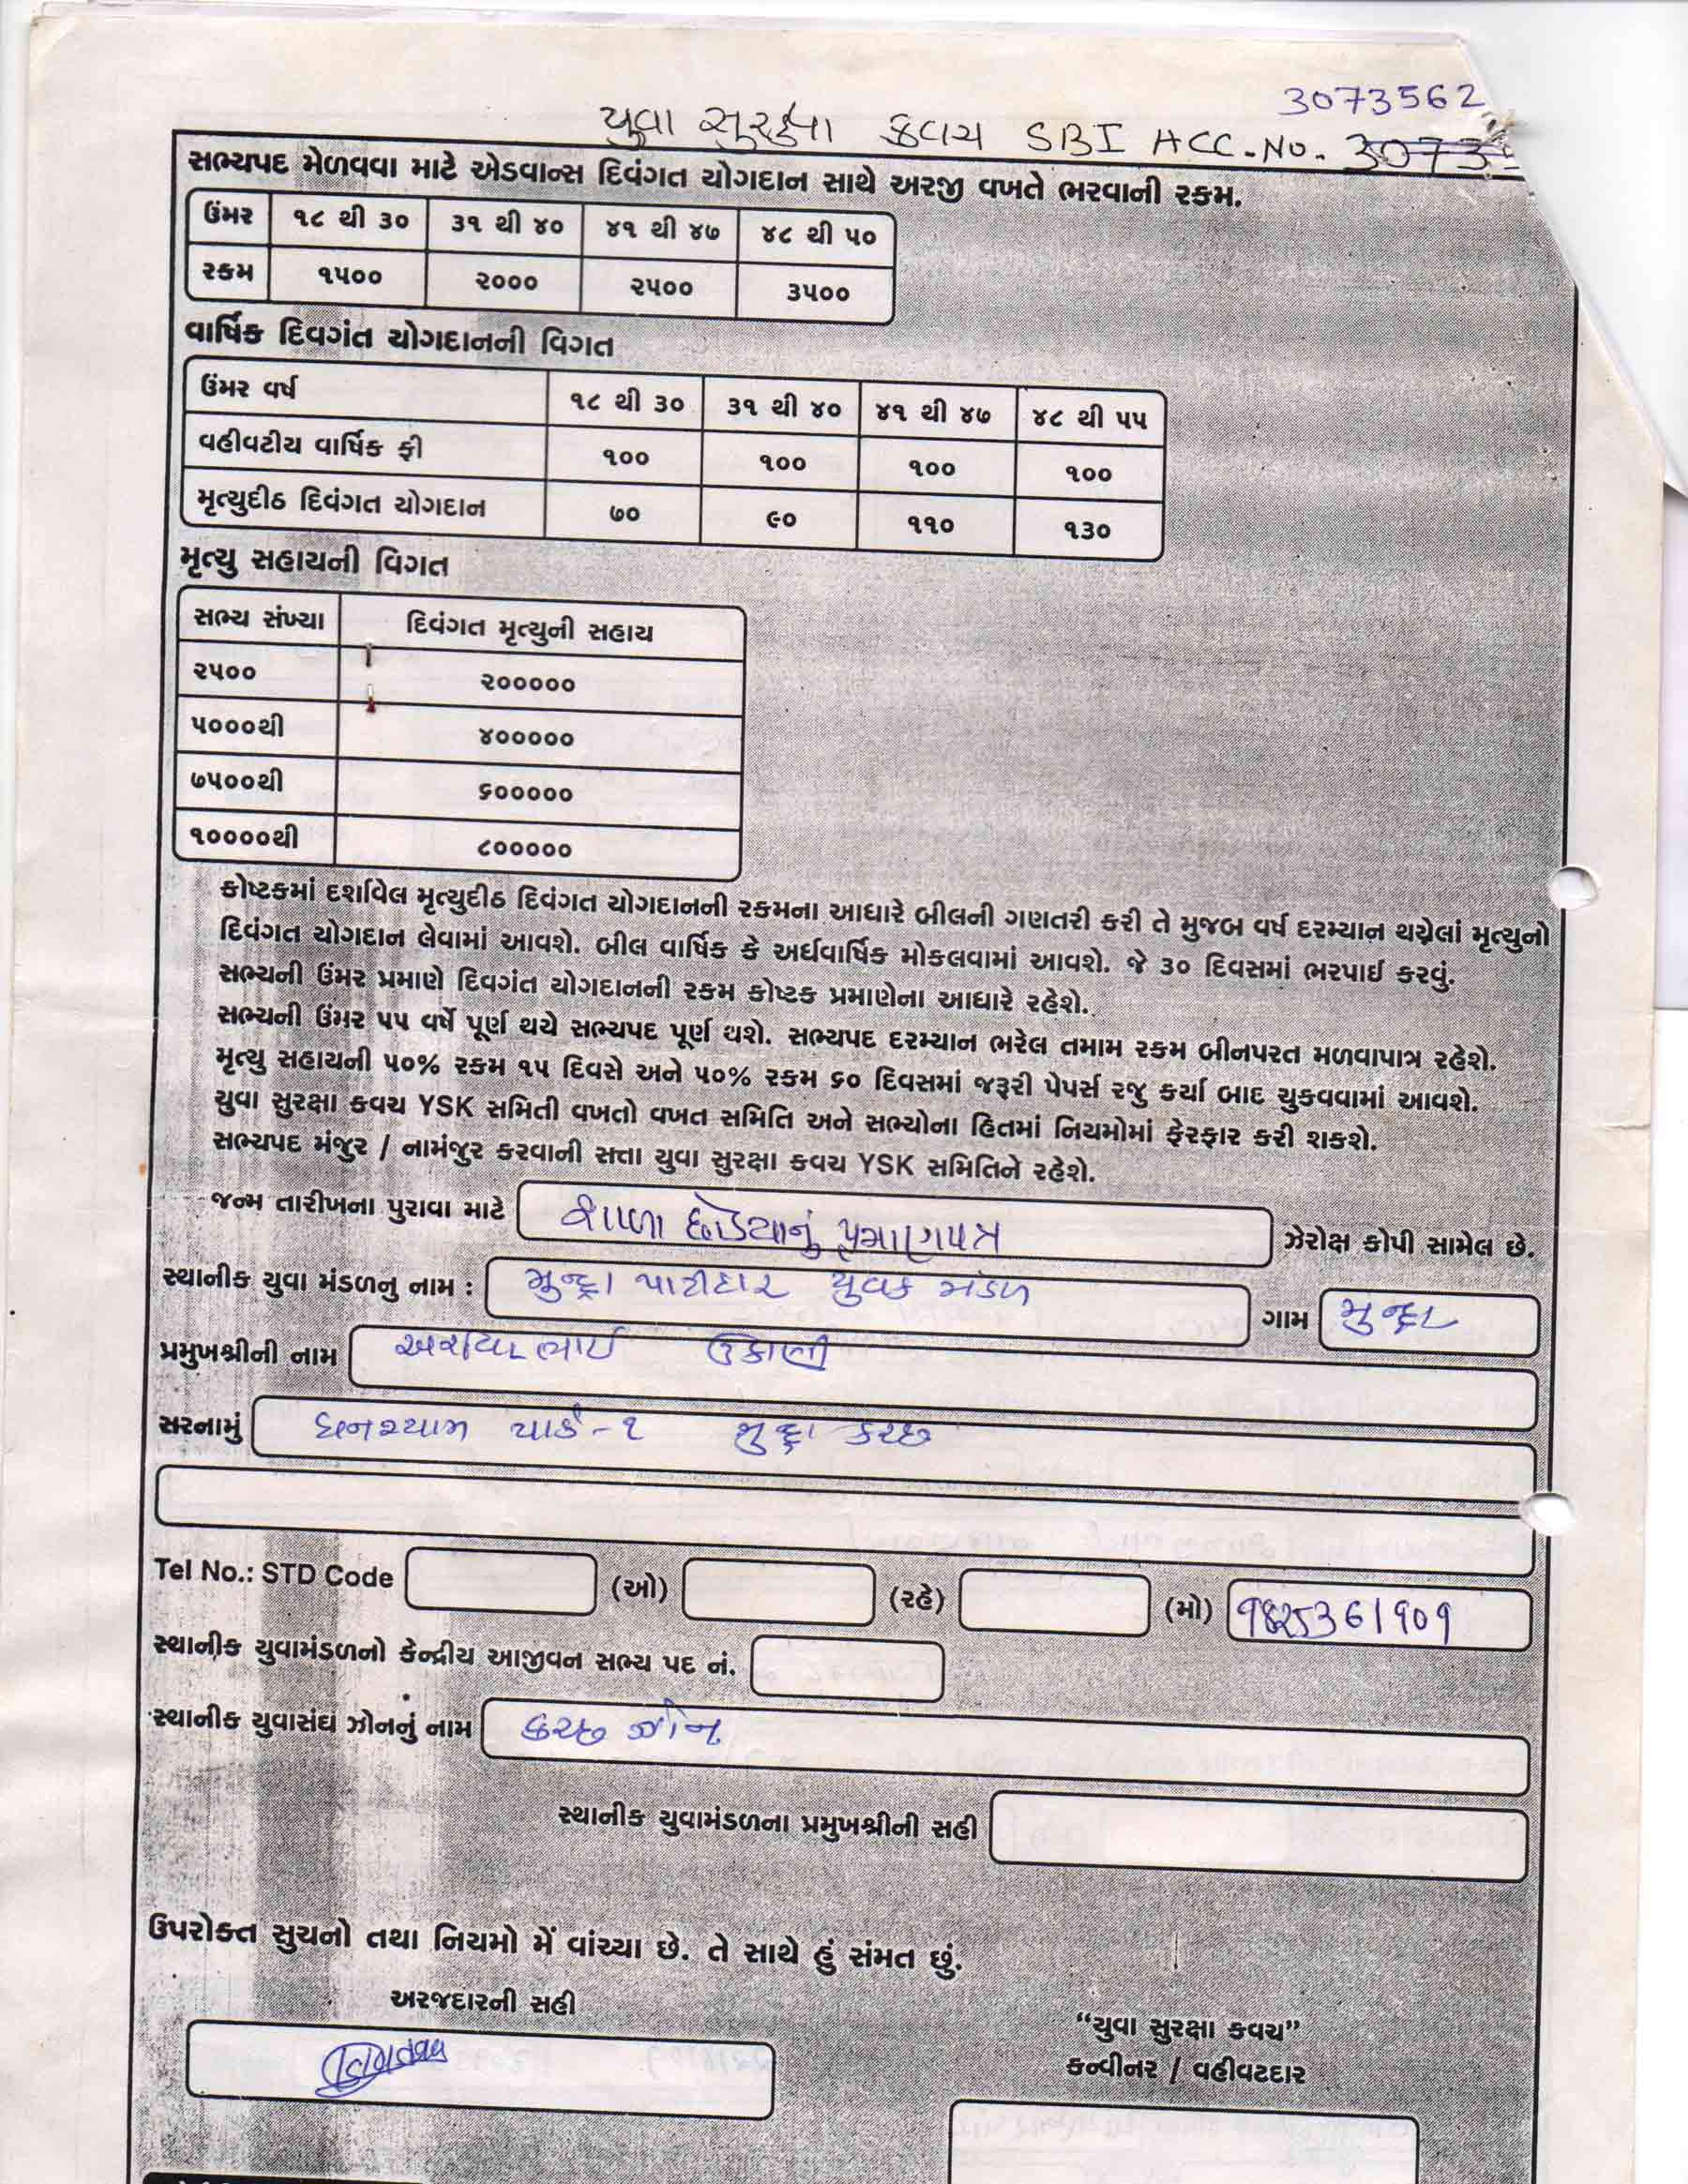 3073562
યુવા સુરક્ષા કવચ SBI ACC.NO. 3073
સભ્યપદ મેળવવા માટે એડવાન્સ દિવંગત યોગદાન સાથે અરજી વખતે ભરવાની રકમ.
ઉંમર ૧૮ થી ૩૦ ૩૧ થી ૪૦ ૪૧ થી ૪૭ ૪૮ થી ૫૦
રકમ ૧૫૦૦ ૨૦૦૦ ૨૫૦૦ ૩૫૦૦
વાર્ષિક દિવગંત યોગદાનની વિગત
ઉંમર વર્ષ ૧૮ થી ૩૦ ૩૧ થી ૪૦ ૪૧ થી ૪૭ ૪૮ થી ૫૫
વહીવટીય વાર્ષિક ફી ૧૦૦ ૧૦૦ ૧૦૦ ૧૦૦
મૃત્યુદીઠ દિવંગત યોગદાન ૭૦ ૯૦ ૧૧૦ ૧૩૦
મૃત્યુ સહાયની વિગત
સભ્ય સંખ્યા દિવંગત મૃત્યુની સહાય
૨૫૦૦ ૨૦૦૦૦૦
૫૦૦૦થી ૪૦૦૦૦૦
૭૫૦૦થી ૬૦૦૦૦૦
૧૦૦૦૦થી ૮૦૦૦૦૦
કોષ્ટકમાં દર્શાવેલ મૃત્યુદીઠ દિવંગત યોગદાનની રકમના આધારે બીલની ગણતરી કરી તે મુજબ વર્ષ દરમ્યાન થયેલાં મૃત્યુનો
દિવંગત યોગદાન લેવામાં આવશે. બીલ વાર્ષિક કે અર્ધવાર્ષિક મોકલવામાં આવશે. જે ૩૦ દિવસમાં ભરપાઈ કરવું.
સભ્યની ઉંમર પ્રમાણે દિવગંત યોગદાનની રકમ કોષ્ટક પ્રમાણેના આધારે રહેશે.
સભ્યની ઉંમર ૫૫ વર્ષે પૂર્ણ થયે સભ્યપદ પૂર્ણ થશે. સભ્યપદ દરમ્યાન ભરેલ તમામ રકમ બીનપરત મળવાપાત્ર રહેશે.
મૃત્યુ સહાયની ૫૦% રકમ ૧૫ દિવસે અને ૫૦% રકમ ૬૦ દિવસમાં જરૂરી પેપર્સ રજુ કર્યા બાદ ચુકવવામાં આવશે.
યુવા સુરક્ષા કવચ YSK સમિતી વખતો વખત સમિતિ અને સભ્યોના હિતમાં નિયમોમાં ફેરફાર કરી શકશે.
સભ્યપદ મંજુર / નામંજુર કરવાની સત્તા યુવા સુરક્ષા કવચ YSK સમિતિને રહેશે.
જન્મ તારીખના પુરાવા માટે શાળા છોડયાનું પ્રમાણપત્ર ઝેરોક્ષ કોપી સામેલ છે.
સ્થાનીક યુવા મંડળનુ નામ : મુન્દ્રા પાટીદાર યુવક મંડળ ગામ મુન્દ્રા
પ્રમુખશ્રીની નામ ભાઈ ઉકાણી
સરનામું ઘનશ્યામ પાર્ક-૧ મુન્દ્રા કચ્છ
Tel No.: STD Code (ઓ) (રહે) (મો) 9825361909
સ્થાનીક યુવામંડળનો કેન્દ્રીય આજીવન સભ્ય પદ નં.
સ્થાનીક યુવાસંઘ ઝોનનું નામ કચ્છ ઝોન
સ્થાનીક યુવામંડળના પ્રમુખશ્રીની સહી
ઉપરોક્ત સુચનો તથા નિયમો મેં વાંચ્યા છે. તે સાથે હું સંમત છું.
અરજદારની સહી
“યુવા સુરક્ષા કવચ”
કન્વીનર / વહીવટદાર